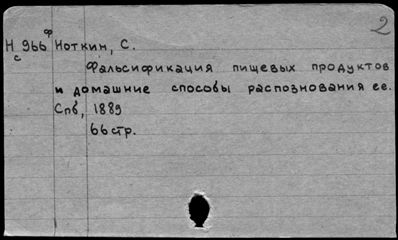 2
ф
Н 966 Ноткин, С.
с
Фальсификация пищевых продуктов
и домашние способы распознования ее.
Спб, 1889
66стр.